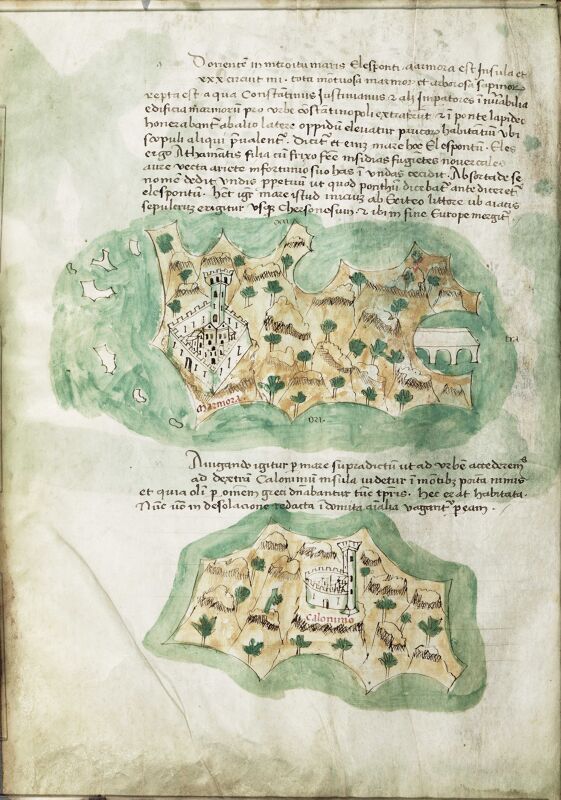 D oriente in introitu maris Elesponti Marmora est Insula et
xxx circuit mi. tota motuosa marmor et arborosa sapinor
repta est a qua Constatinus Iustinianus & alij Impatores
edificia marmorum pro urbe costatinopoli extraxerut & i ponte lapideo
honerabant ab alio latere oppidu eleuatur paucor habitatiu ubi
scopuli aliqui pualent. Dicit et eius mare hoc Elespontu. Eles
ergo Athamatis filia cu frixo fre insidias fugietes nouercales
aure vecta ariete infortunio suo has i undas cecidit. Absortade se
nomen dedit undis ppetuu ut quod ponthu dicebat ante diceret
elespontu. Hec igr mare istud iniciu ab Geiteo littore ub aiatis
sepulcrus erigitur usq Chersonesum & ibi in fine Europe mergit
occi
Marmora
tra
ori
Nauigando igitur p mare supradictu ut ad urbe accederem
ad dextra Calonimu insula uidetur i motibus posita nimis
et quia oli p omem greci dnabantur tuc tpris. Hec erat habitata.
Nuc uo in desolacione redacta i domita aialia uagarit p eam.
Calonimo